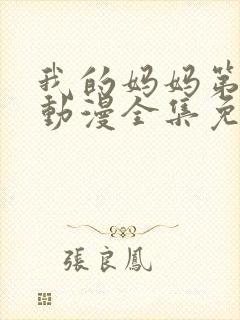 我的妈妈第
動漫全集免
張良鳳